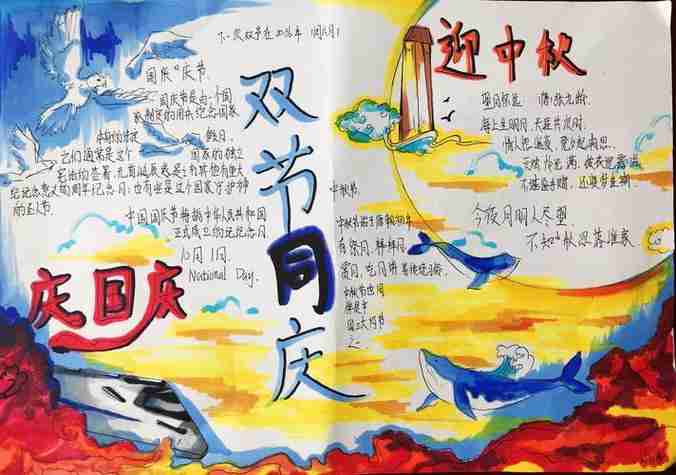 下一次双节在二〇三一年 10月1日
双节同庆
国家"庆节
国庆节是由一个国
家制定的用来纪念国家
本身的法定 假日
它们通常是这个 国家的独立
宪法的签署、元首诞辰或是其他有重大
纪念意义的周年纪念日,也有些是这个国家守护神
的圣人节
中国国庆节特指中华人民共和国
正式成立的纪念日
10月1日
National Day.
庆国庆
迎中秋
望月怀远 唐·张九龄
海上生明月,天涯共此时
情人怨遥夜,竟夕起相思
灭烛怜光满,披衣觉露滋
不堪盈手赠,还寝梦佳期
今夜月明人尽望
不知秋思落谁家
中秋节
有祭月、
赏月、吃月饼等传统习俗,
中秋节也同
样是中
国三大灯节
之一